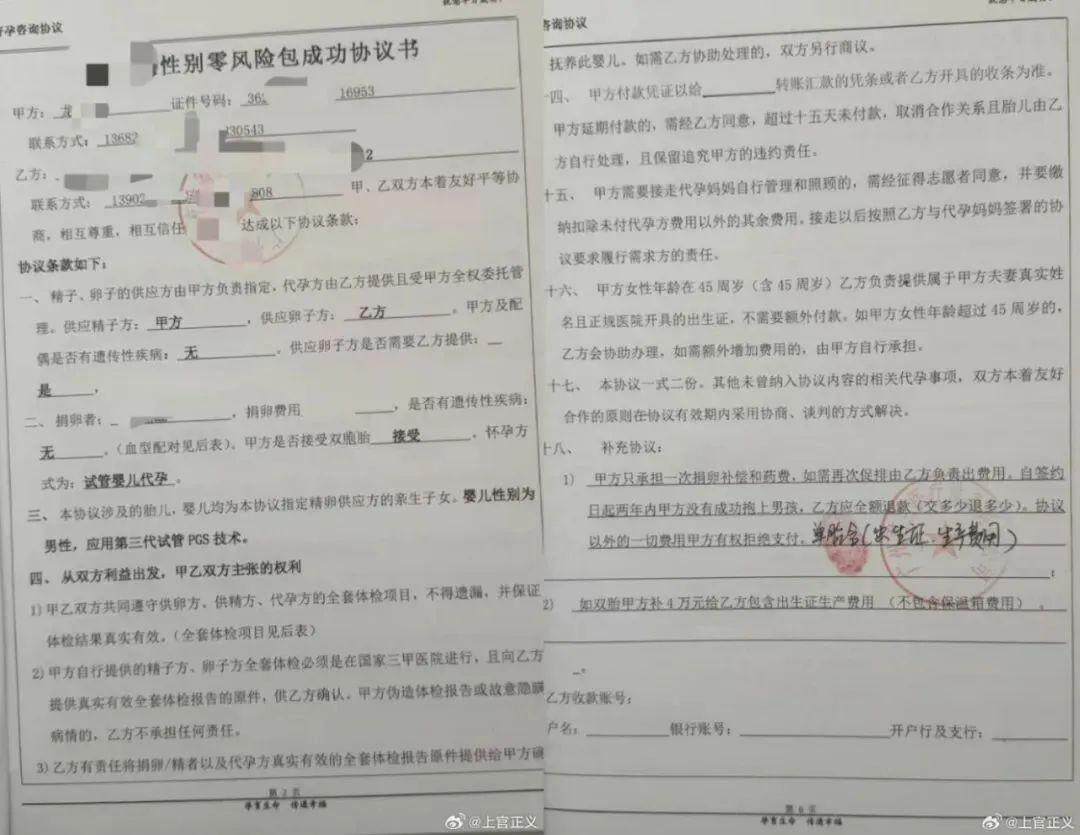 孕咨询协议
性别零风险包成功协议书
甲方：
证件号码：36
16953
联系方式：13682
30543
乙方：
2
联系方式：13902
808
甲、乙双方本着友好平等协
商，相互尊重，相互信任
达成以下协议条款：
协议条款如下：
一、精子、卵子的供应方由甲方负责指定，代孕方由乙方提供且受甲方全权委托管
理。供应精子方： 甲方 ，供应卵子方： 乙方 。甲方及配
偶是否有遗传性疾病： 无 。供应卵子方是否需要乙方提供：
是 ，
二、捐卵者： ，捐卵费用 ，是否有遗传性疾病：
无 。（血型配对见后表）。甲方是否接受双胞胎 接受 。怀孕方
式为：试管婴儿代孕。
三、本协议涉及的胎儿，婴儿均为本协议指定精卵供应方的亲生子女。婴儿性别为
男性，应用第三代试管 PGS 技术。
四、从双方利益出发，甲乙双方主张的权利
1）甲乙双方共同遵守供卵方、供精方、代孕方的全套体检项目，不得遗漏，并保证
体检结果真实有效。（全套体检项目见后表）
2）甲方自行提供的精子方、卵子方全套体检必须是在国家三甲医院进行，且向乙方
提供真实有效全套体检报告的原件，供乙方确认。甲方伪造体检报告或故意隐瞒
病情的，乙方不承担任何责任。
3）乙方有责任将捐卵/精者以及代孕方真实有效的全套体检报告原件提供给甲方确
第 2 页
孕育生命 传递幸福
咨询协议
抚养此婴儿。如需乙方协助处理的，双方另行商议。
十四、 甲方付款凭证以给 转账汇款的凭条或者乙方开具的收条为准。
甲方延期付款的，需经乙方同意，超过十五天未付款，取消合作关系且胎儿由乙
方自行处理，且保留追究甲方的违约责任。
十五、 甲方需要接走代孕妈妈自行管理和照顾的，需经征得志愿者同意，并要缴
纳扣除未付代孕方费用以外的其余费用。接走以后按照乙方与代孕妈妈签署的协
议要求履行需求方的责任。
十六、 甲方女性年龄在 45 周岁（含 45 周岁）乙方负责提供属于甲方夫妻真实姓
名且正规医院开具的出生证，不需要额外付款。如甲方女性年龄超过 45 周岁的，
乙方会协助办理，如需额外增加费用的，由甲方自行承担。
十七、 本协议一式二份。其他未曾纳入协议内容的相关代孕事项，双方本着友好
合作的原则在协议有效期内采用协商、谈判的方式解决。
十八、 补充协议：
1） 甲方只承担一次捐卵补偿和药费，如需再次促排由乙方负责出费用。自签约
日起两年内甲方没有成功抱上男孩，乙方应全额退款（交多少退多少）。协议
以外的一切费用甲方有权拒绝支付。单胎含（出生证、生产费用）
；
2） 如双胎甲方补 4 万元给乙方包含出生证生产费用 （不包含保温箱费用） 。
。
乙方收款账号：
户名： 银行账号： 开户行及支行：
第 6 页
孕育生命 传递幸福
@上官正义
@上官正义